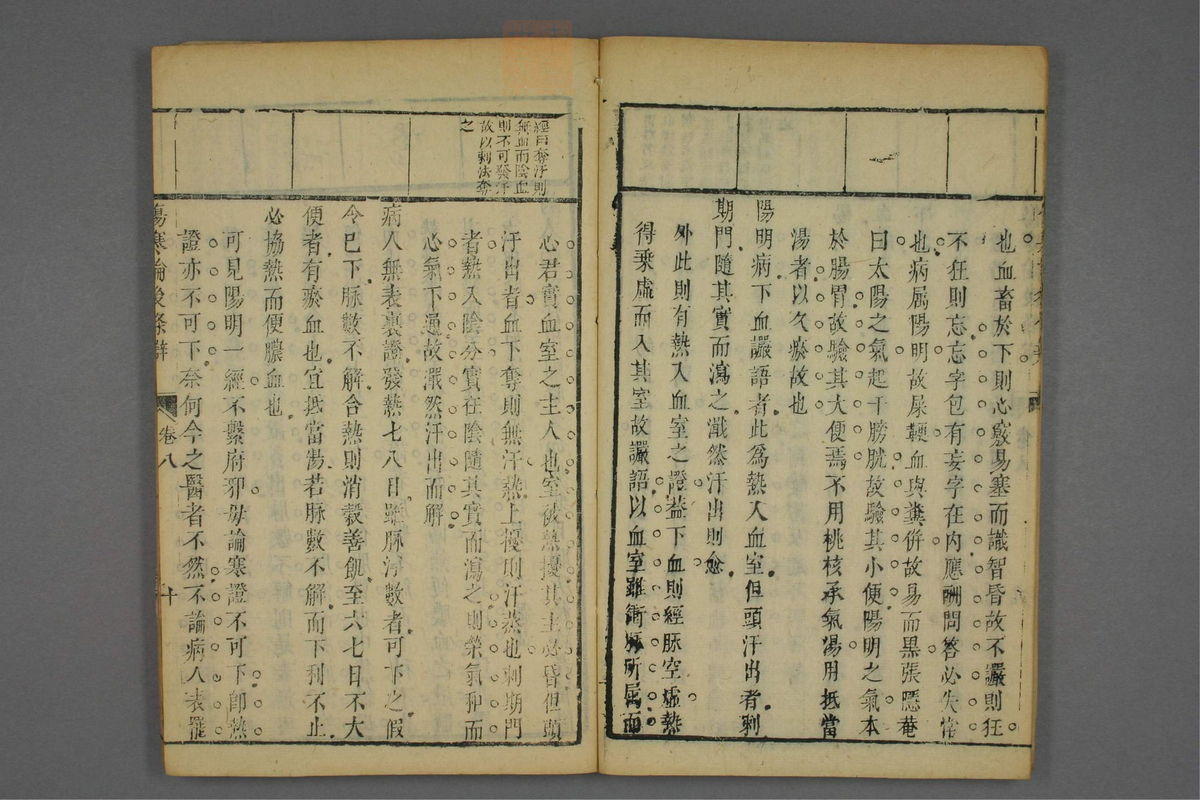 也血畜於下則心竅易塞而識智昏故不讝則狂
不狂則忘忘字包有妄字在內應酬問答必失常
也病屬陽明故屎鞕血與糞併故易而黑張隱菴
曰太陽之氣起于膀胱故驗其小便陽明之氣本
於腸胃故驗其大便焉不用桃核承氣湯用抵當
湯者以久瘀故也
陽明病下血讝語者此為熱入血室但頭汗出者刺
期門隨其實而瀉之濈然汗出則愈
外此則有熱入血室之證益下血則經脉空虛熱
得乘虛而入其室故讝語以血室雖衝脉所屬而
經曰奪汗則
無血而陰血
則不可發汗
故以刺法奪
之
心君實血室之主人也室被熱擾其主必昏但頭
汗出者血下奪則無汗熱上擾則汗蒸也刺期門
者熱入陰分實在陰隨其實而瀉之則榮氣和而
心氣下通故濈然汗出而解
病人無表裏證發熱七八日雖脉浮數者可下之假
令已下脉數不解合熱則消穀善飢至六七日不大
便者有瘀血也宜抵當湯若脉數不解而下利不止
必協熱而便膿血也
可見陽明一經不繫府邪毋論寒證不可下卽熱
證亦不可下奈何今之醫者不然不論病人表罷
傷寒論後條辨
卷八
十